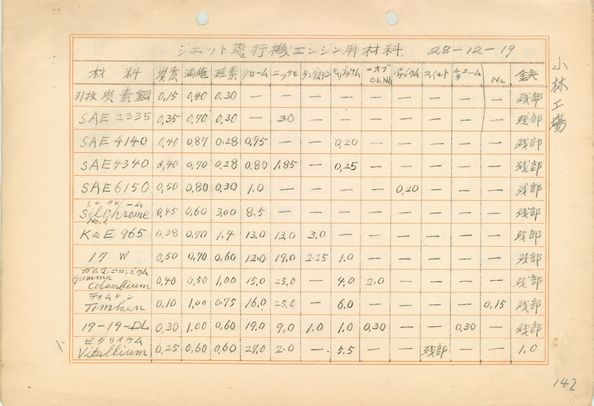 ジェット飛行機エンジン用材料 28-12-19
小林工場
材料 炭素 満俺 珪素 クローム ニッケル タングステン モリブデム ニオブ Cb.Nb バナヂウム コバルト チタニーム N₂ 鉄
引抜炭素鋼 0.15 0.40 0.30 — — — — — — — — — 残部
SAE 2335 0.35 0.70 0.30 — 3.0 — — — — — — — 残部
SAE 4140 0.40 0.87 0.28 0.95 — — 0.20 — — — — — 残部
SAE 4340 0.40 0.70 0.28 0.80 1.85 — 0.25 — — — — — 残部
SAE 6150 0.50 0.80 0.30 1.0 — — — — 0.20 — — — 残部
シルクローム
Silchrome No.1 0.45 0.60 3.00 8.5 — — — — — — — — 残部
K&E 965 0.38 0.70 1.4 13.0 13.0 3.0 — — — — — — 残部
17 W 0.50 0.70 0.60 12.0 19.0 2.25 1.0 — — — — — 残部
ガムマ、コロンビウム
Gamma Columbium 0.40 0.50 1.00 15.0 25.0 — 4.0 2.0 — — — — 残部
ティムケン
Timken 0.10 1.00 0.75 16.0 25.0 — 6.0 — — — — 0.15 残部
19-19-DL 0.30 1.00 0.60 19.0 9.0 1.0 1.0 0.30 — — 0.30 — 残部
ビタリイウム
Vitallium 0.25 0.60 0.60 27.0 2.0 — 5.5 — — 残部 — — 1.0
142